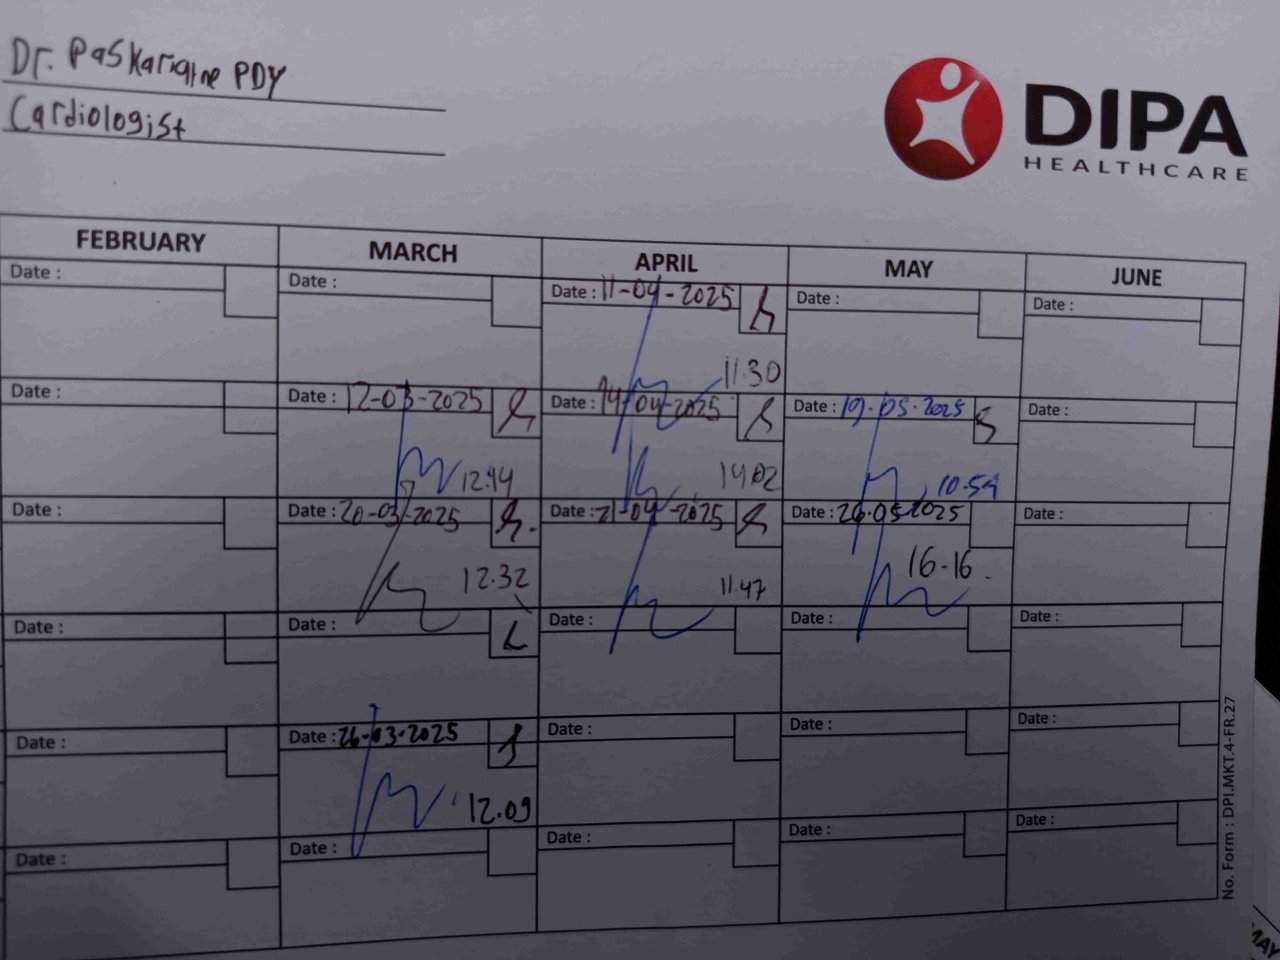 Dr. Paskariatne PDY
Cardiologist
DIPA
HEALTHCARE
FEBRUARY MARCH APRIL MAY JUNE
Date : Date : Date : 11-04-2025 Date : Date :
11.30
Date : Date : 12-03-2025 Date : 14-04-2025 Date : 19.05.2025 Date :
12.44 14.02 10.54
Date : Date : 20-03-2025 Date : 21-04-2025 Date : 26.05.2025 Date :
12.32 11.47 16-16.
Date : Date : Date : Date : Date :
Date : Date : 26-03-2025 Date : Date : Date :
12.09
Date : Date : Date : Date : Date :
No. Form : DPI.MKT.4-FR.27
MAY